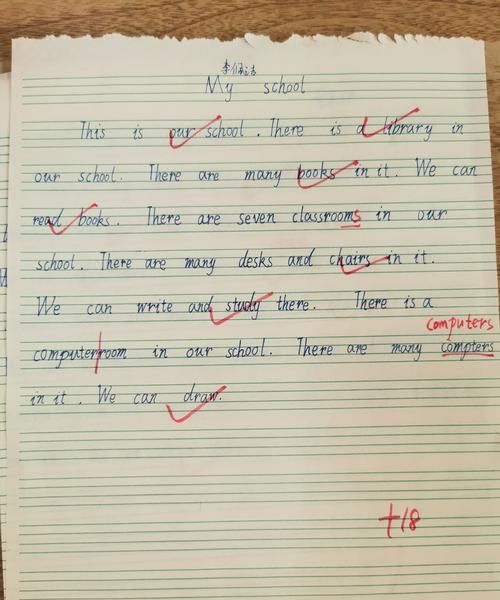 My school
This is our school. There is a library in
our school. There are many books in it. We can
read books. There are seven classrooms in our
school. There are many desks and chairs in it.
We can write and study there. There is a
computers
computerroom in our school. There are many compters
in it. We can draw.
+18